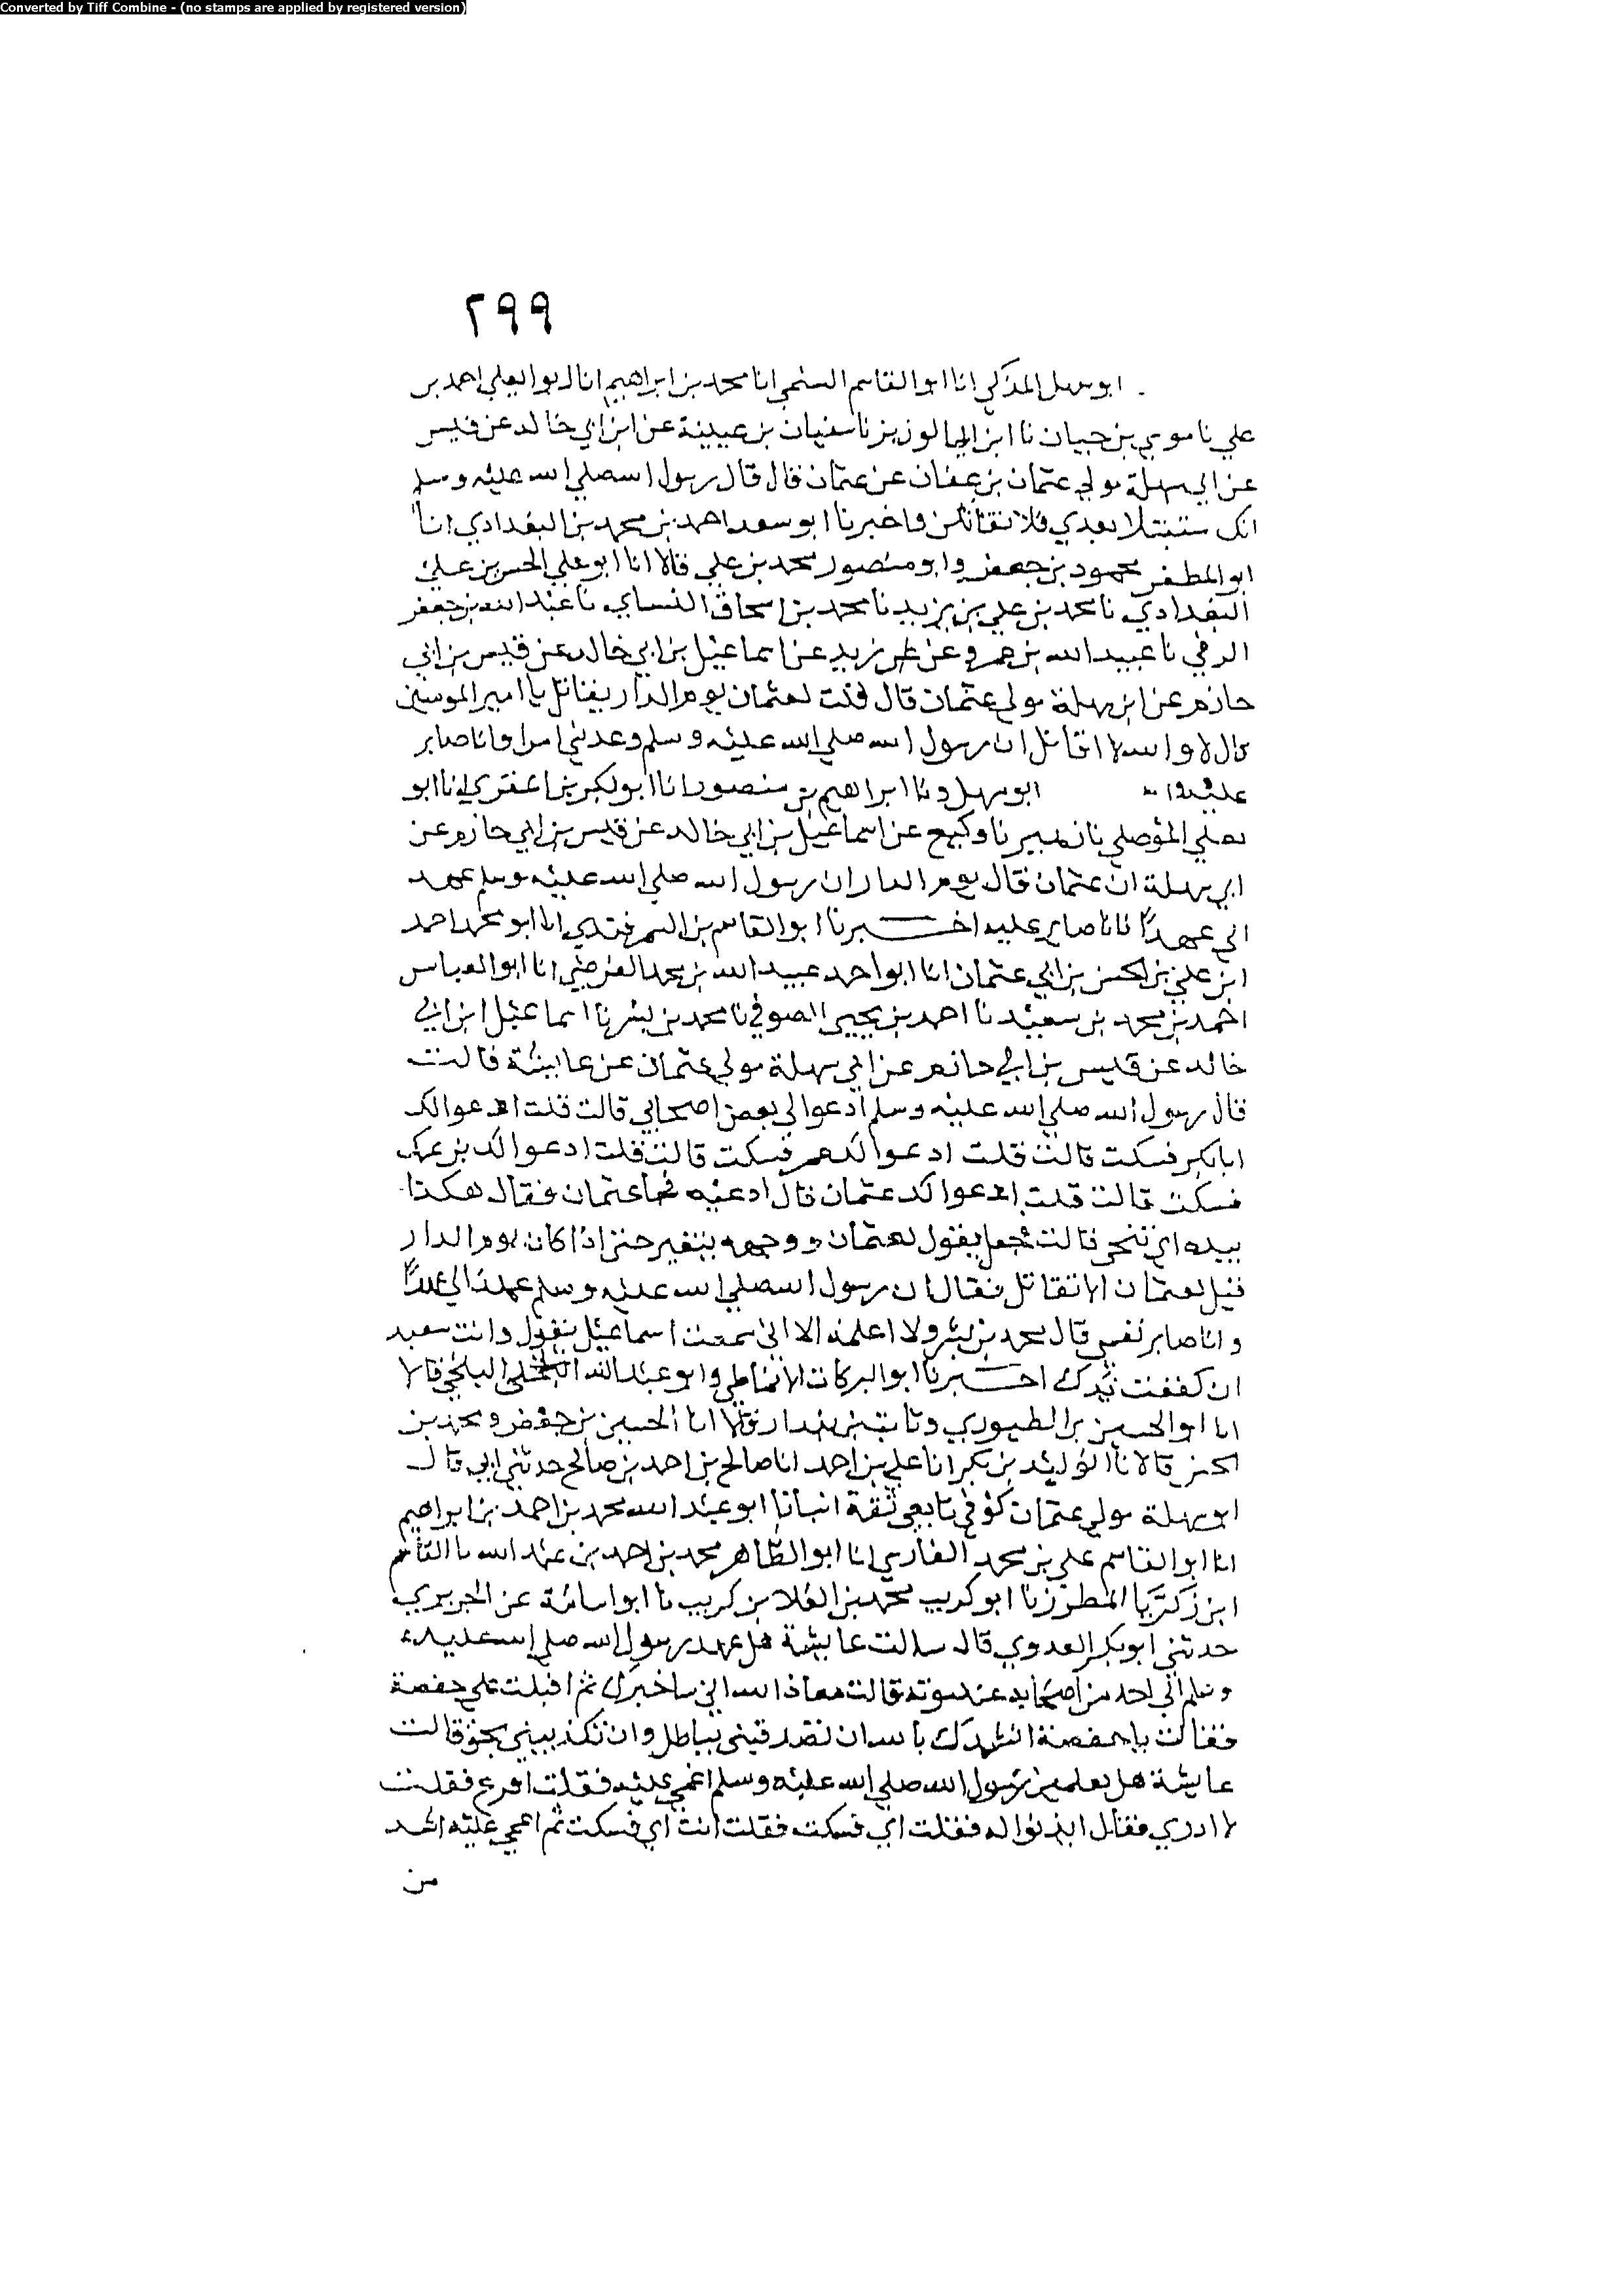 Converted by Tiff Combine - (no stamps are applied by registered version)
٢٩٩
ابو سهل المذكي انا ابو القاسم السلمي انا محمد بن ابراهيم انا ابو يعلى احمد بن
علي نا موسى بن حيان نا سفيان بن عيينة عن ابن ابي خالد عن قيس
عن ابي سهلة مولى عثمان بن عفان عن عثمان قال قال رسول الله صلى الله عليه وسلم
انك ستبتلا بعدي فلا تقاتلن واخبرنا ابو سعد احمد بن محمد بن البغدادي انا
ابو المظفر محمود بن جعفر وابو منصور محمد بن علي قالا انا ابو علي الحسن بن علي
البغدادي نا محمد بن علي بن يزيد نا محمد بن اسحاق النساي نا عبد الله بن جعفر
الرقي نا عبيد الله بن عمرو عن زيد عن اسماعيل بن ابي خالد عن قيس بن ابي
حازم عن ابن سهلة مولى عثمان قال قلت لعثمان يوم الدار يقاتل يا امير المومنين
قال لا والله لا اقاتل ان رسول الله صلى الله عليه وسلم وعدني امرا وانا صابر
عليه ابو سهل ونا ابراهيم بن منصور انا ابو بكر بن المقري انا ابو
يعلي الموصلي نا نمير نا وكيع عن اسماعيل بن ابي خالد عن قيس بن ابي حازم عن
ابي سهلة ان عثمان قال يوم الدار ان رسول الله صلى الله عليه وسلم عهد
الي عهدا فانا صابر عليه اخبرنا ابو القاسم بن السمرقندي انا ابو محمد احمد
ابن علي بن الحسن بن ابي عثمان انا ابو احمد عبيد الله بن محمد الفرضي انا ابو العباس
احمد بن محمد بن سعيد نا احمد بن يحيى الصوفي نا محمد بن بشر نا اسماعيل ابن ابي
خالد عن قيس بن ابي حازم عن ابي سهلة مولى عثمان عن عايشة قالت
قال رسول الله صلى الله عليه وسلم ادعوا لي بعض اصحابي قالت قلت ادعوا لك
ابا بكر فسكت قالت قلت ادعوا لك عمر فسكت قالت قلت ادعوا لك بن عمك
فسكت قالت قلت ادعوا لك عثمان قال ادعيه فجا عثمان فقال هكذا
بيده اي تنحى قالت فجعل يقول لعثمان ووجهه يتغير حتى اذا كان يوم الدار
قيل لعثمان الا تقاتل فقال ان رسول الله صلى الله عليه وسلم عهد الي عهدا
وانا صابر نفسي قال محمد بن بشر ولا اعلمه الا اني سمعت اسماعيل يقول وانت سعيد
ان كففت يدك اخبرنا ابو البركات الانماطي وابو عبد الله البلخي قالا
انا ابو الحسين بن الطيوري وثابت بن بندار قالا انا الحسين بن جعفر ومحمد بن
الحسن قالا نا الوليد بن بكر انا علي بن احمد انا صالح بن احمد بن صالح حدثني ابي قال
ابو سهلة مولى عثمان كوفي تابعي ثقة انبانا ابو عبد الله محمد بن احمد بن ابراهيم
انا ابو القاسم علي بن محمد الفارسي انا ابو الطاهر محمد بن احمد بن عبد الله نا القاسم
ابن زكريا المطرز نا ابو كريب محمد بن العلا بن كريب نا ابو اسامة عن الجريري
حدثني ابو بكر العدوي قال سالت عايشة هل عهد رسول الله صلى الله عليه
وسلم الى احد من اصحابه عند موته قالت معاذ الله اني ساخبرك ثم اقبلت على حفصة
فقالت يا حفصة انشدك بالله ان تصدقيني بباطل وان تكذبيني بحق قالت
عايشة هل تعلمين رسول الله صلى الله عليه وسلم اغمي عليه فقلت افرغ فقلت
لا ادري فقال ايذنوا له فقلت ابي فسكت فقلت انت ابي فسكت ثم اغمي عليه اشد
من